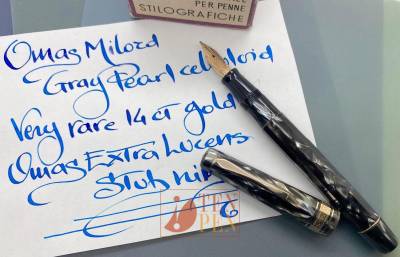 PER PENNE
STILOGRAFICHE
Omas Milord
Gray Pearl celluloid
Very rare 14 ct gold
Omas Extra Lucens
Stub nib
TEN
PEN